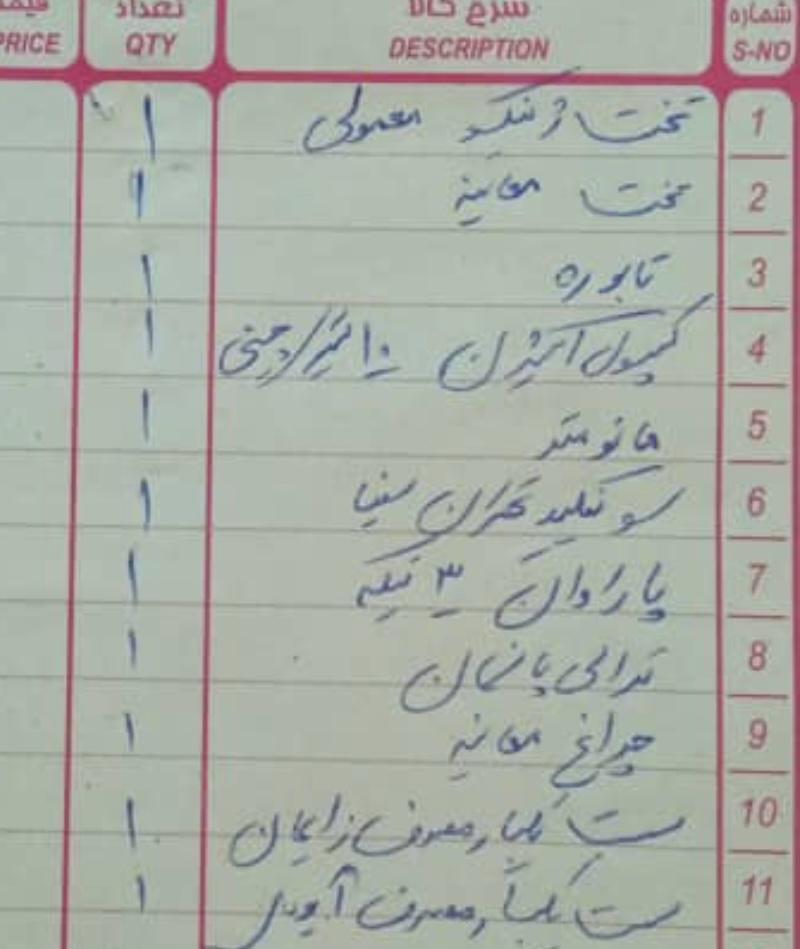 شماره S-NO شرح کالا DESCRIPTION تعداد QTY قیمت PRICE
1 تخت ژنیکو معمولی ۱
2 تخت معاینه ۱
3 تابوره ۱
4 کپسول اکسیژن ۱۰ لیتر/چینی ۱
5 مانومتر ۱
6 سونیکید تهران سینا ۱
7 پاراوان ۳ تیکه ۱
8 ترالی پانسمان ۱
9 چراغ معاینه ۱
10 ست یکبار مصرف زایمان ۱
11 ست یکبار مصرف ۱